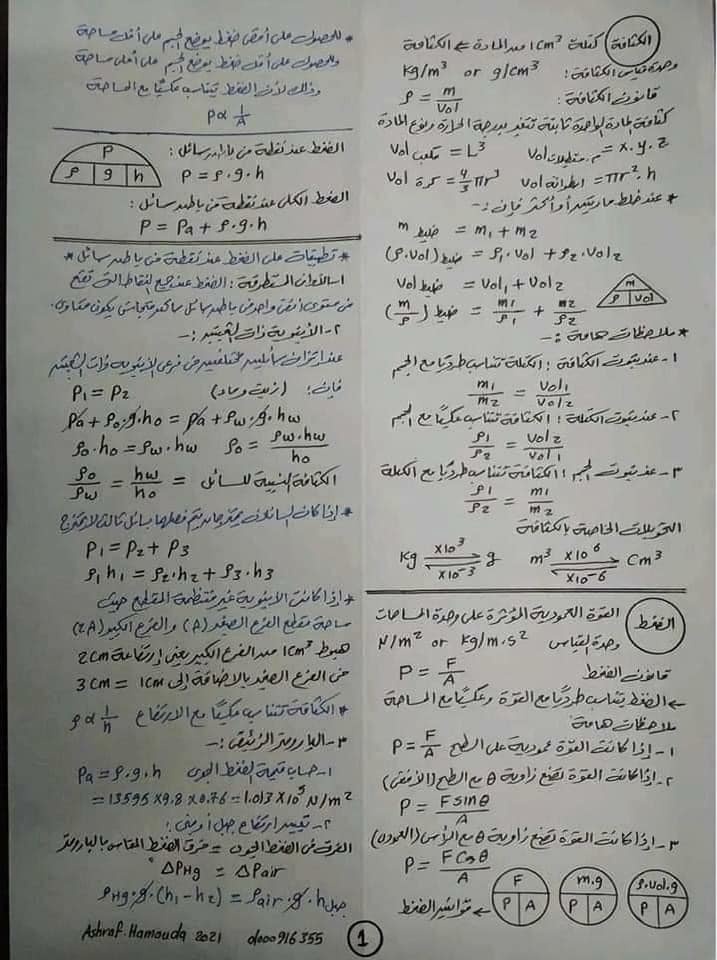 الكثافة
كتلة 1cm³ من المادة ⇐ الكثافة
وحدة قياس الكثافة: kg/m³ or g/cm³
قانون الكثافة: ρ = m/Vol
كثافة المادة الواحدة ثابتة تتغير بدرجة الحرارة ونوع المادة
Vol مكعب = L³ Vol م.مستطيلات = x.y.z
Vol كرة = 4/3 πr³ Vol اسطوانة = πr².h
* عند خلط مادتين أو أكثر فإن :-
m خليط = m₁ + m₂
(ρ.Vol) خليط = ρ₁.Vol₁ + ρ₂.Vol₂
Vol خليط = Vol₁ + Vol₂
(m/ρ) خليط = m₁/ρ₁ + m₂/ρ₂
m ρ Vol
* ملاحظات هامة :-
١- عند ثبوت الكثافة : الكتلة تتناسب طرديًا مع الحجم
m₁/m₂ = Vol₁/Vol₂
٢- عند ثبوت الكتلة : الكثافة تتناسب عكسيًا مع الحجم
ρ₁/ρ₂ = Vol₂/Vol₁
٣- عند ثبوت الحجم : الكثافة تتناسب طرديًا مع الكتلة
ρ₁/ρ₂ = m₁/m₂
التحويلات الخاصة بالكثافة
Kg ×10³ ×10⁻³ g m³ ×10⁶ ×10⁻⁶ Cm³
الضغط
القوة العمودية المؤثرة على وحدة المساحات
وحدة القياس N/m² or kg/m.s²
قانون الضغط P = F/A
← الضغط يتناسب طرديًا مع القوة وعكسيًا مع المساحة
ملاحظات هامة
١- إذا كانت القوة عمودية على السطح P = F/A
٢- إذا كانت القوة تصنع زاوية θ مع السطح (الأفقى)
P = F sinθ/A
٣- إذا كانت القوة تصنع زاوية θ مع الرأس (العمودى)
P = F Cosθ/A
F P A m.g P A ρ.Vol.g P A
← قوانين الضغط
* للحصول على أقصى ضغط يوضع الجسم على أقل مساحة
وللحصول على أقل ضغط يوضع الجسم على أعلى مساحة
وذلك لأن الضغط يتناسب عكسيًا مع المساحة
P ∝ 1/A
الضغط عند نقطة فى باطن سائل :
P = ρ.g.h
P ρ g h
الضغط الكلى عند نقطة فى باطن سائل :
P = Pa + ρ.g.h
* تطبيقات على الضغط عند نقطة فى باطن سائل *
١- الأوانى المستطرقة : الضغط عند جميع النقاط التى تقع
فى مستوى أفقى واحد فى باطن سائل ساكن متجانس يكون متساوى.
٢- الأنبوبة ذات الشعبتين :-
عند اتزان سائلين مختلفين فى فرعى الأنبوبة ذات الشعبتين
فإن : (زيت وماء) P₁ = P₂
Pa + ρo.g.ho = Pa + ρw.g.hw
ρo.ho = ρw.hw ρo = ρw.hw/ho
ρo/ρw = hw/ho = الكثافة النسبية للسائل
* إذا كان السائلان يمتزجان يتم فصلهما بسائل ثالث لا يمتزج
P₁ = P₂ + P₃
ρ₁h₁ = ρ₂.h₂ + ρ₃.h₃
* إذا كانت الأنبوبة غير منتظمة المقطع حيث
مساحة مقطع الفرع الصغير (A) والفرع الكبير (2A)
هبوط 1cm من الفرع الكبير يعنى ارتفاعه 2cm
فى الفرع الصغير بالإضافة إلى 1cm = 3cm
* الكثافة تتناسب عكسيًا مع الارتفاع ρ ∝ 1/h
٣- البارومتر الزئبقى :-
١- حساب قيمة الضغط الجوى Pa = ρ.g.h
= 13595 × 9.8 × 0.76 = 1.013 × 10⁵ N/m²
٢- تعيين ارتفاع جبل أو مبنى :
الفرق فى الضغط الجوى = فرق الضغط المقاس بالبارومتر
ΔPHg = ΔPair
ρHg.g.(h₁ - h₂) = ρair.g.h جبل
Ashraf.Hamouda 2021
1